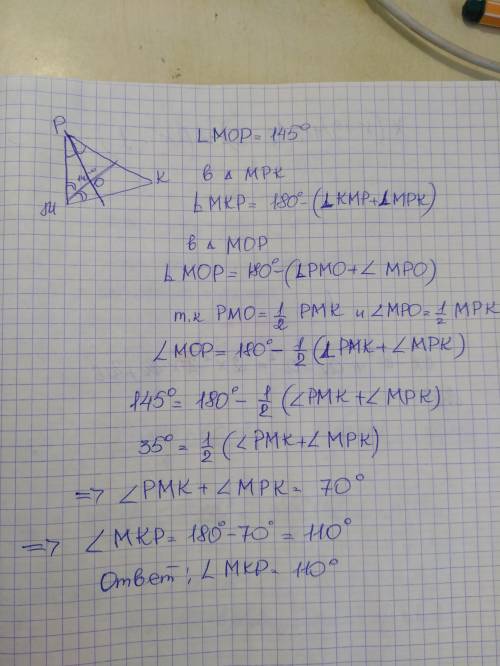 P
K
M
O
∠MOP = 145°
в △ MPK
∠MKP = 180° - (∠KMP + ∠MPK)
в △ MOP
∠MOP = 180° - (∠PMO + ∠MPO)
т.к PMO = 1/2 PMK и ∠MPO = 1/2 MPK
∠MOP = 180° - 1/2 (∠PMK + ∠MPK)
145° = 180° - 1/2 (∠PMK + ∠MPK)
35° = 1/2 (∠PMK + ∠MPK)
=> ∠PMK + ∠MPK = 70°
=> ∠MKP = 180° - 70° = 110°
Ответ: ∠MKP = 110°